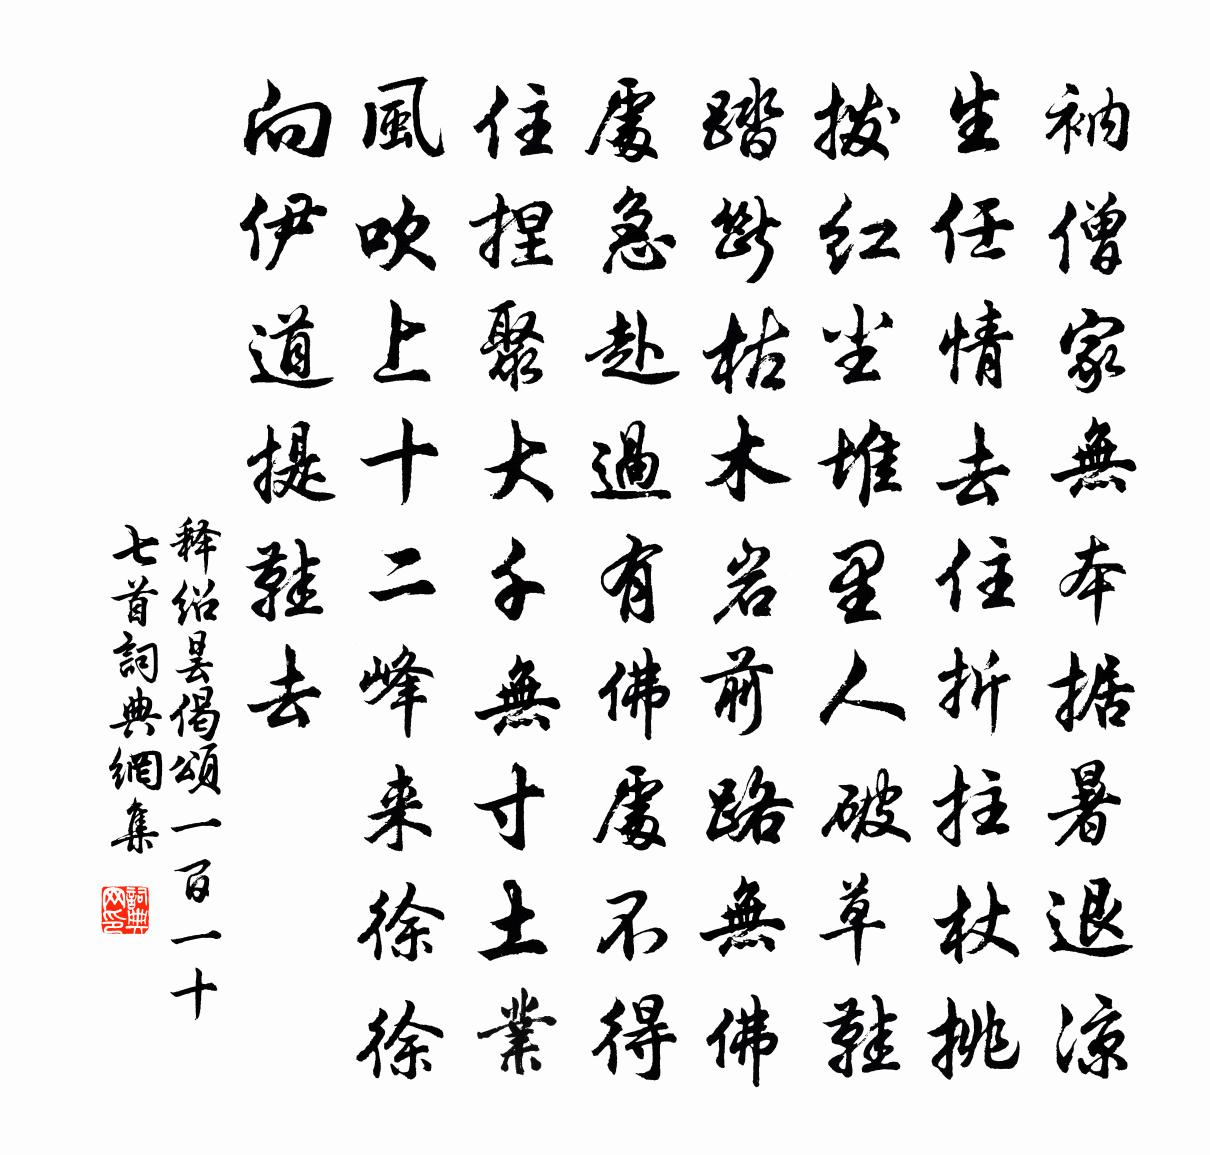 衲僧家無本据暑退凉
生任情去住折拄杖挑
拨红尘堆里人破草鞋
踏斷枯木岩前路無佛
處急赴過有佛處不得
住捏聚大千無寸土業
風吹上十二峰来徐徐
向伊道提鞋去
释绍昙偈頌一百一十
七首詞典網集
詞典网印